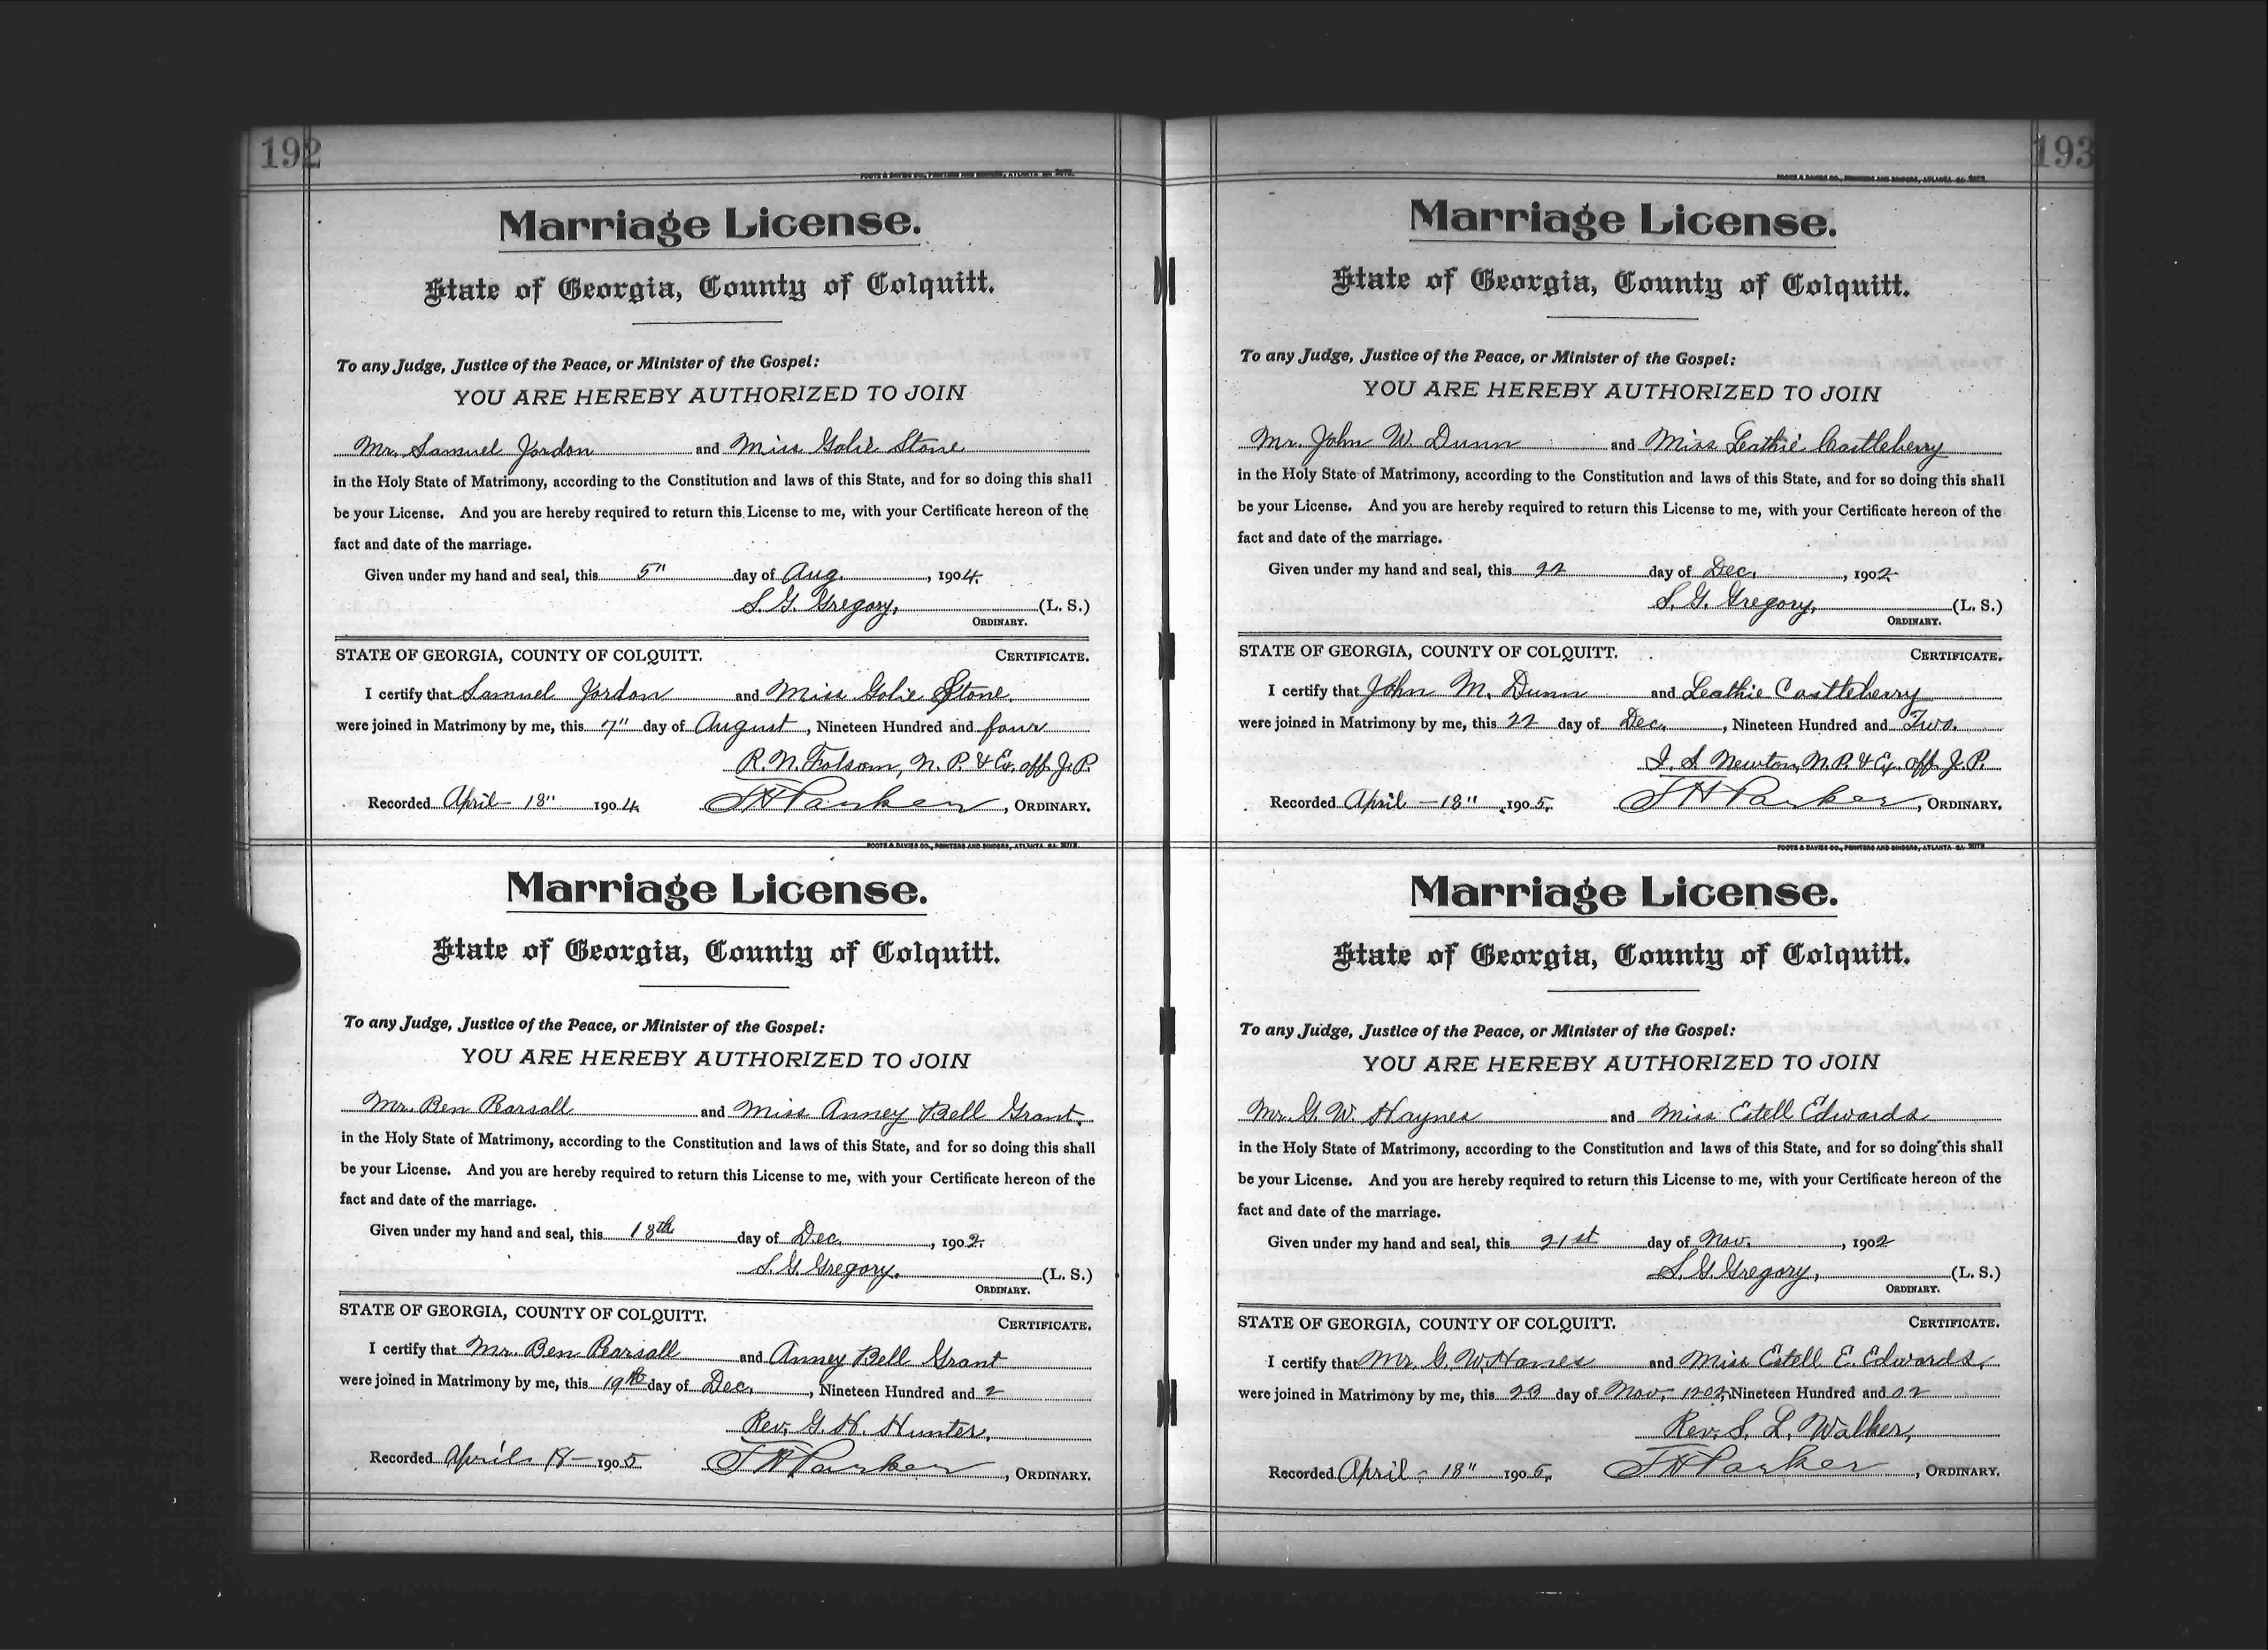 192
FOOTE & DAVIES CO., PRINTERS AND BINDERS, ATLANTA, GA.
Marriage License.
State of Georgia, County of Colquitt.
To any Judge, Justice of the Peace, or Minister of the Gospel:
YOU ARE HEREBY AUTHORIZED TO JOIN
Mr. Samuel Jordon and Miss Golie Stone
in the Holy State of Matrimony, according to the Constitution and laws of this State, and for so doing this shall
be your License. And you are hereby required to return this License to me, with your Certificate hereon of the
fact and date of the marriage.
Given under my hand and seal, this 5" day of Aug. , 1904.
S. G. Gregory, (L. S.)
ORDINARY.
STATE OF GEORGIA, COUNTY OF COLQUITT. CERTIFICATE.
I certify that Samuel Jordon and Miss Golie Stone,
were joined in Matrimony by me, this 7" day of August , Nineteen Hundred and four
R. N. Folsom, N. P. & Ex. off. J. P.
Recorded April - 18" 1904. J H Parker , ORDINARY.
FOOTE & DAVIES CO., PRINTERS AND BINDERS, ATLANTA, GA.
Marriage License.
State of Georgia, County of Colquitt.
To any Judge, Justice of the Peace, or Minister of the Gospel:
YOU ARE HEREBY AUTHORIZED TO JOIN
Mr. Ben Barsall and Miss Anney Bell Grant,
in the Holy State of Matrimony, according to the Constitution and laws of this State, and for so doing this shall
be your License. And you are hereby required to return this License to me, with your Certificate hereon of the
fact and date of the marriage.
Given under my hand and seal, this 18th day of Dec. , 1902.
S. G. Gregory. (L. S.)
ORDINARY.
STATE OF GEORGIA, COUNTY OF COLQUITT. CERTIFICATE.
I certify that Mr. Ben Barsall and Anney Bell Grant
were joined in Matrimony by me, this 19th day of Dec. , Nineteen Hundred and 2
Rev. G. H. Hunter.
Recorded April 18 - 1905 J H Parker , ORDINARY.
193
FOOTE & DAVIES CO., PRINTERS AND BINDERS, ATLANTA, GA.
Marriage License.
State of Georgia, County of Colquitt.
To any Judge, Justice of the Peace, or Minister of the Gospel:
YOU ARE HEREBY AUTHORIZED TO JOIN
Mr. John W. Dunn and Miss Leathie Castleberry
in the Holy State of Matrimony, according to the Constitution and laws of this State, and for so doing this shall
be your License. And you are hereby required to return this License to me, with your Certificate hereon of the
fact and date of the marriage.
Given under my hand and seal, this 22 day of Dec. , 1902
S. G. Gregory, (L. S.)
ORDINARY.
STATE OF GEORGIA, COUNTY OF COLQUITT. CERTIFICATE.
I certify that John M. Dunn and Leathie Castleberry
were joined in Matrimony by me, this 22 day of Dec. , Nineteen Hundred and Two.
I. S Newton, N. P. & Ex. off J. P.
Recorded April - 18" , 1905. J H Parker , ORDINARY.
FOOTE & DAVIES CO., PRINTERS AND BINDERS, ATLANTA, GA.
Marriage License.
State of Georgia, County of Colquitt.
To any Judge, Justice of the Peace, or Minister of the Gospel:
YOU ARE HEREBY AUTHORIZED TO JOIN
Mr. G. W. Haynes and Miss Estell Edwards
in the Holy State of Matrimony, according to the Constitution and laws of this State, and for so doing this shall
be your License. And you are hereby required to return this License to me, with your Certificate hereon of the
fact and date of the marriage.
Given under my hand and seal, this 21st day of Nov. , 1902
S. G. Gregory, (L. S.)
ORDINARY.
STATE OF GEORGIA, COUNTY OF COLQUITT. CERTIFICATE.
I certify that Mr. G. W. Hanes and Miss Estell E. Edwards,
were joined in Matrimony by me, this 23 day of Nov. 1202, Nineteen Hundred and 02
Rev. S. L. Walker,
Recorded April - 18" 1905. J H Parker , ORDINARY.